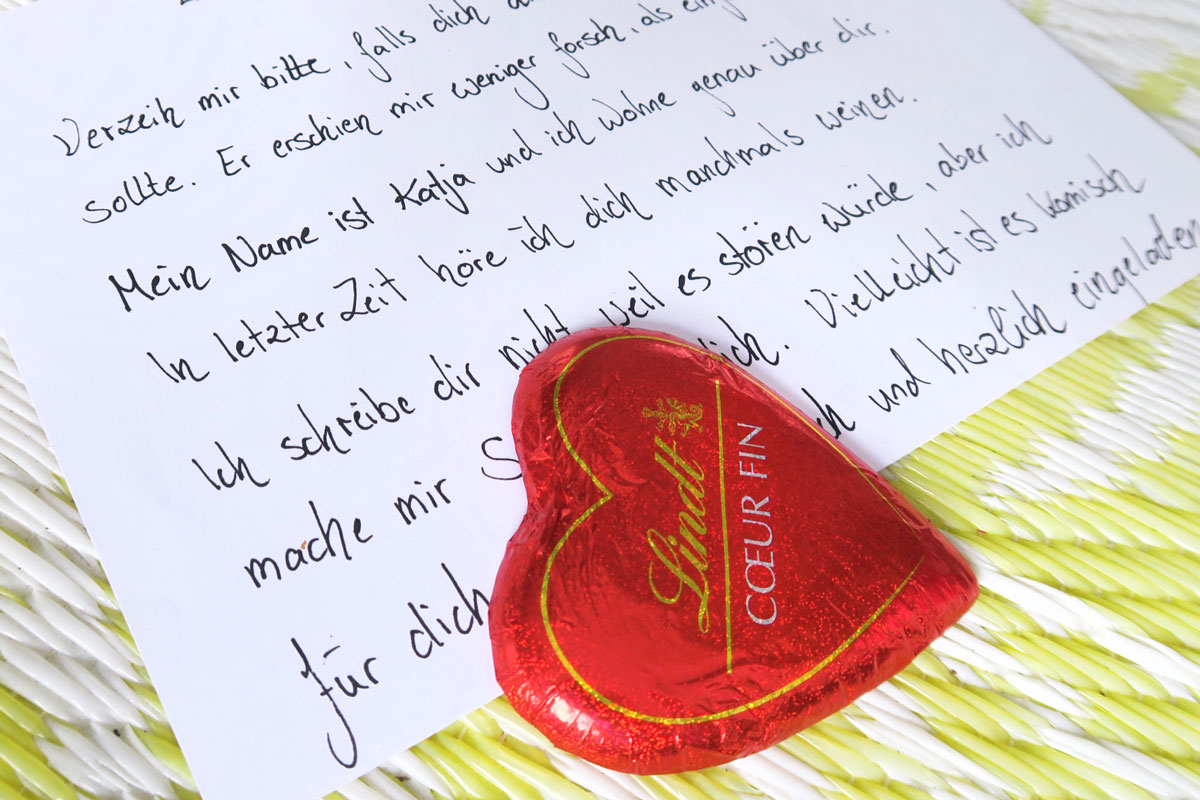 Verzeih mir bitte, falls dich
sollte. Er erschien mir weniger forsch, als
Mein Name ist Katja und ich wohne genau über dir.
In letzter Zeit höre ich dich manchmals weinen.
Ich schreibe dir nicht weil es stören würde, aber ich
mache mir dich. Vielleicht ist es komisch
für dich und herzlich eingeladen
Lindt
CŒUR FIN